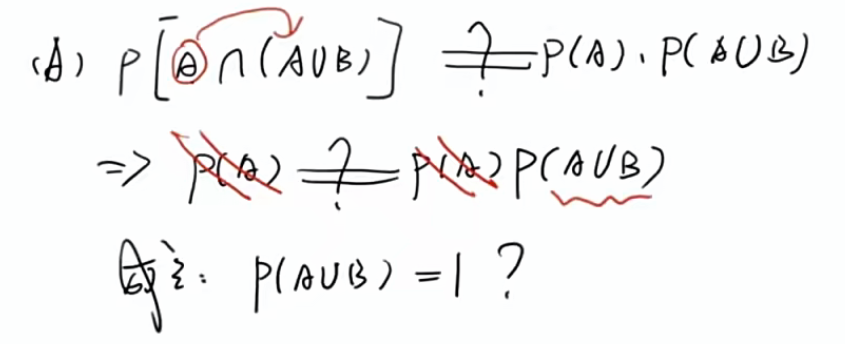 (A) P[A∩(A∪B)] ≟ P(A)·P(A∪B)
=> P(A) ≟ P(A)P(A∪B)
: P(A∪B)=1?